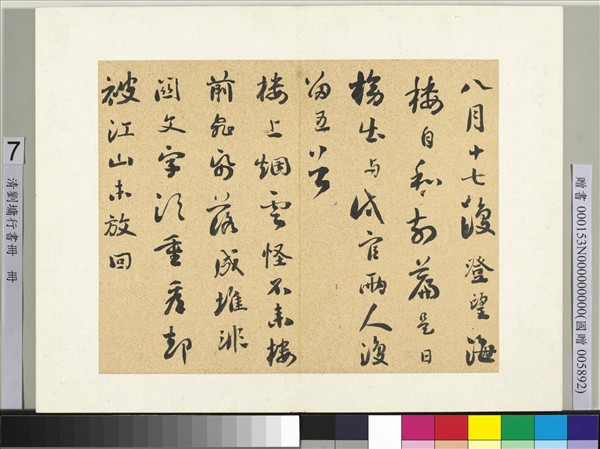 八月十七復登望海
樓自和前篇是日
榜出与試官兩人復
留五首
樓上烟雲怪不來樓
前飛紙落成堆非
関文字須重看却
被江山未放回
7
清劉墉行書冊 冊
贈書 000153N000000000(國贈 005892)